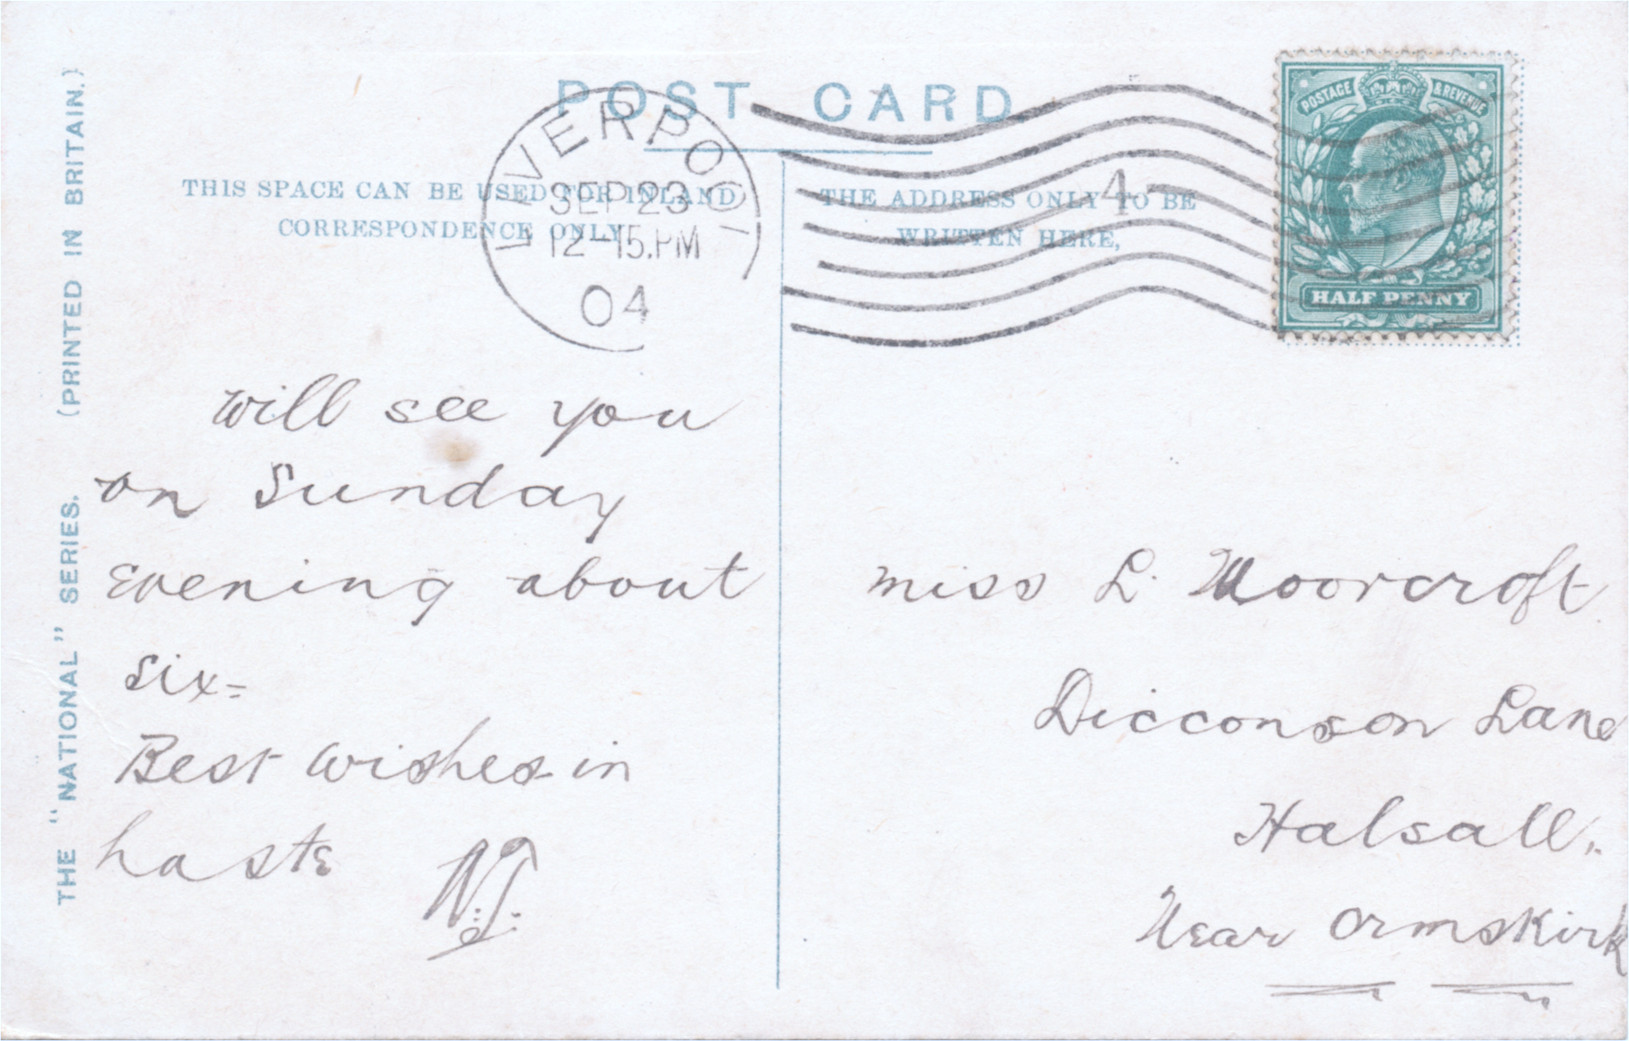 POST CARD
THIS SPACE CAN BE USED FOR INLAND
CORRESPONDENCE ONLY
THE ADDRESS ONLY TO BE
WRITTEN HERE,
LIVERPOOL
SEP 23
12-15.PM
04
4
POSTAGE & REVENUE
HALF PENNY
THE "NATIONAL" SERIES. (PRINTED IN BRITAIN.)
Will see you
on Sunday
Evening about
six=
Best Wishes in
haste
Miss L. Moorcroft
Dicconson Lane
Halsall.
Near Ormskirk